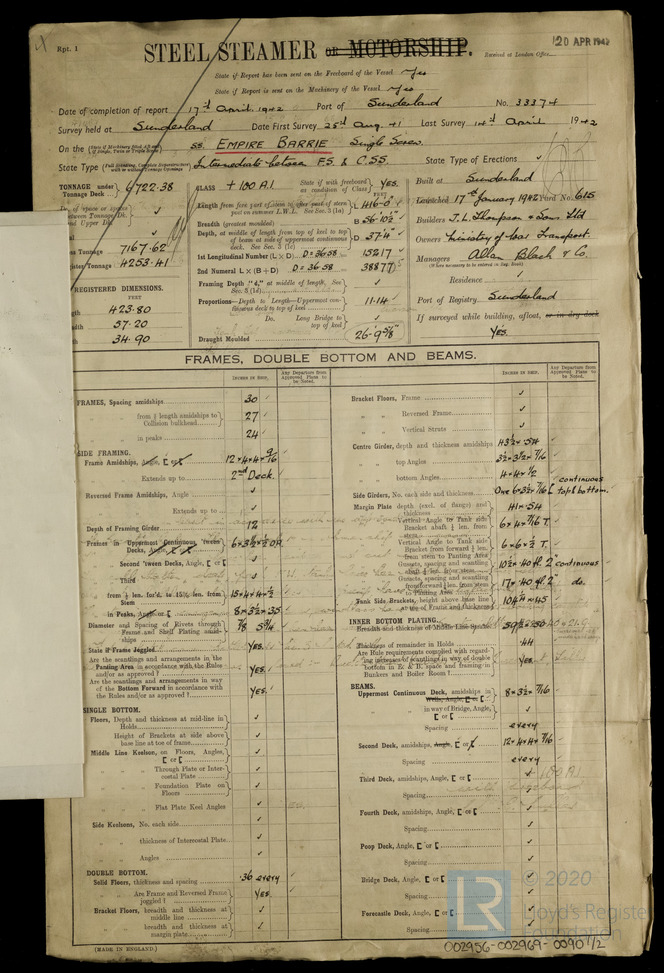 Rpt. 1
STEEL STEAMER OR MOTORSHIP.
20 APR 1942
Received at London Office
State if Report has been sent on the Freeboard of the Vessel Yes
State if Report is sent on the Machinery of the Vessel Yes
Date of completion of report 17th April 1942 Port of Sunderland No. 33374
Survey held at Sunderland Date First Survey 25th Aug. 41 Last Survey 14th April 1942
On the SS. EMPIRE BARRIE Single Screw.
State Type Intermediate between F.S. & C.S.S. State Type of Erections
TONNAGE under Tonnage Deck 6722.38
CLASS + 100 A1 State if with freeboard as condition of Class YES.
Built at Sunderland
Length from fore part of stem to after part of stern post on summer L.W.L. See Sec. 3 (1a) L 416'-0"
Launched 17th January 1942 Yard No. 615
Breadth (greatest moulded) B 56'-10½"
Builders J. L. Thompson & Sons Ltd
Depth, at middle of length from top of keel to top of beam at side of uppermost continuous deck. See Sec. 3 (1c) D 37'4"
Owners Ministry of War Transport.
Tonnage 7167.62
1st Longitudinal Number (L × D) D=36.58 15217
Managers Allan Black & Co.
Tonnage 4253.41
2nd Numeral L × (B + D) D=36.58 38877
Residence
REGISTERED DIMENSIONS.
FEET
Framing Depth "d," at middle of length, See Sec. 3 (1d)
423.80
Proportions—Depth to Length—Uppermost continuous deck to top of keel 11.14
Port of Registry Sunderland
57.20
Do. Long Bridge to top of keel
If surveyed while building, afloat, or in dry dock
34.90
Draught Moulded 26'-9⅝"
Yes.
FRAMES, DOUBLE BOTTOM AND BEAMS.
INCHES IN SHIP. Any Departure from Approved Plans to be Noted.
INCHES IN SHIP. Any Departure from Approved Plans to be Noted.
FRAMES, Spacing amidships 30
from ⅕ length amidships to Collision bulkhead 27
in peaks 24
SIDE FRAMING.
Frame Amidships, Angle, [ or [ 12×4×4×9/16
Extends up to 2nd Deck
Reversed Frame Amidships, Angle
Extends up to
Depth of Framing Girder 12
Frames in Uppermost Continuous 'tween Decks, Angle, [ or [
Second 'tween Decks, Angle, [ or [
Third
from ⅕ len. for'd. to 15% len. from Stem 15×4×4×½
in Peaks, Angle or [ 8×3½×.35
Diameter and Spacing of Rivets through Frame and Shell Plating amidships 7/8 5¾
State if Frame Joggled Yes.
Are the scantlings and arrangements in the Panting Area in accordance with the Rules and/or as approved? Yes.
Are the scantlings and arrangements in way of the Bottom Forward in accordance with the Rules and/or as approved? Yes.
SINGLE BOTTOM.
Floors, Depth and thickness at mid-line in Holds
Height of Brackets at side above base line at toe of frame
Middle Line Keelson, on Floors, Angles, [ or [
Through Plate or Intercostal Plate
Foundation Plate on Floors
Flat Plate Keel Angles
Side Keelsons, No. each side
thickness of Intercostal Plate
Angles
DOUBLE BOTTOM.
Solid Floors, thickness and spacing .36 every
Are Frame and Reversed Frame joggled? Yes
Bracket Floors, breadth and thickness at middle line
breadth and thickness at margin plate
Bracket Floors, Frame
Reversed Frame
Vertical Struts
Centre Girder, depth and thickness amidships 43½×.54
top Angles 3½×3½×7/16
bottom Angles 4×4×½
Side Girders, No. each side and thickness One 6×3½×7/16 [ continuous top & bottom.
Margin Plate depth (excl. of flange) and thickness 41×.54
Vertical Angle to Tank side Bracket abaft ¼ len. from stem 6×4×7/16 T.
Vertical Angle to Tank side Bracket from forward ¼ len. from stem to Panting Area 6×6×½ T.
Gussets, spacing and scantling abaft ¼ len. from stem 10½×.40 fl. 2" continuous
Gussets, spacing and scantling forward ¼ len. from stem to Panting Area 17×.40 fl. 2" do.
Tank Side Brackets, height above base line at toe of Frame and thickness
INNER BOTTOM PLATING.
Breadth and thickness of Middle Line Strake
Thickness of remainder in Holds .44
Are Rule requirements complied with regarding increases of scantlings in way of double bottom in E. & B. space and framing in Bunkers and Boiler Room? Yes
BEAMS.
Uppermost Continuous Deck, amidships in Wells, Angle, [ or [ 8×3½×7/16
in way of Bridge, Angle, [ or [
Spacing every
Second Deck, amidships, Angle, [ or [ 12×4×4×7/16
Spacing every
Third Deck, amidships, Angle, [ or [
Spacing
Fourth Deck, amidships, Angle, [ or [
Spacing
Poop Deck, Angle, [ or [
Spacing
Bridge Deck, Angle, [ or [
Spacing
Forecastle Deck, Angle, [ or [
Spacing
(MADE IN ENGLAND.)
LR
© 2020
Lloyd's Register
Foundation
002956-002969-0090 1/2